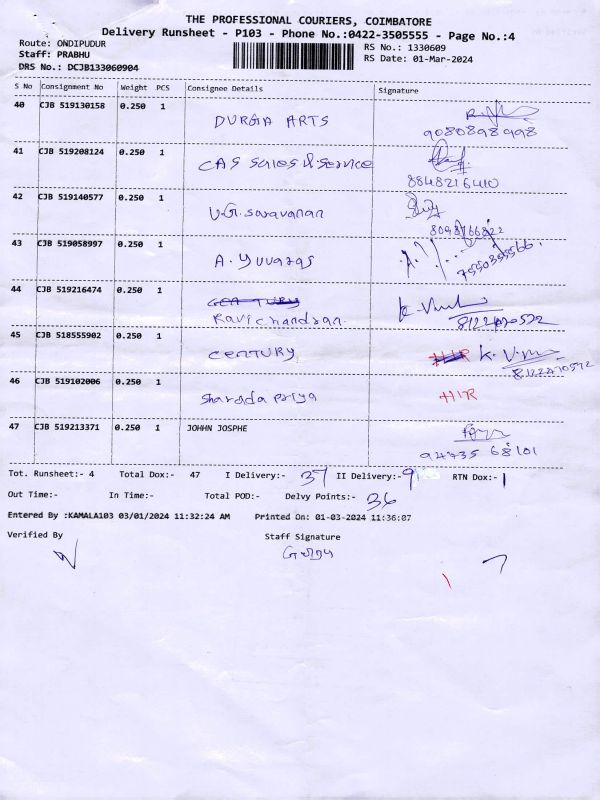 THE PROFESSIONAL COURIERS, COIMBATORE
Delivery Runsheet - P103 - Phone No.:0422-3505555 - Page No.:4
Route: ONDIPUDUR
RS No.: 1330609
Staff: PRABHU
RS Date: 01-Mar-2024
DRS No.: DCJB133060904
S No Consignment No Weight PCS Consignee Details Signature
40 CJB 519130158 0.250 1 DURGA ARTS
9080898998
41 CJB 519208124 0.250 1 CAS Sales & Service
8848216410
42 CJB 519140577 0.250 1 V.G. Saravanan
8098766822
43 CJB 519058997 0.250 1 A. Yuvaras
7550355566.
44 CJB 519216474 0.250 1 CENTURY
Ravichandran.
8122470572
45 CJB 518555902 0.250 1 CENTURY
8122470572
46 CJB 519102006 0.250 1 Sharada Priya H1R
47 CJB 519213371 0.250 1 JOHHN JOSPHE
94735 68101
Tot. Runsheet:- 4 Total Dox:- 47 I Delivery:- 37 II Delivery:- 9 RTN Dox:- 1
Out Time:- In Time:- Total POD:- Delvy Points:- 36
Entered By :KAMALA103 03/01/2024 11:32:24 AM Printed On: 01-03-2024 11:36:07
Verified By Staff Signature